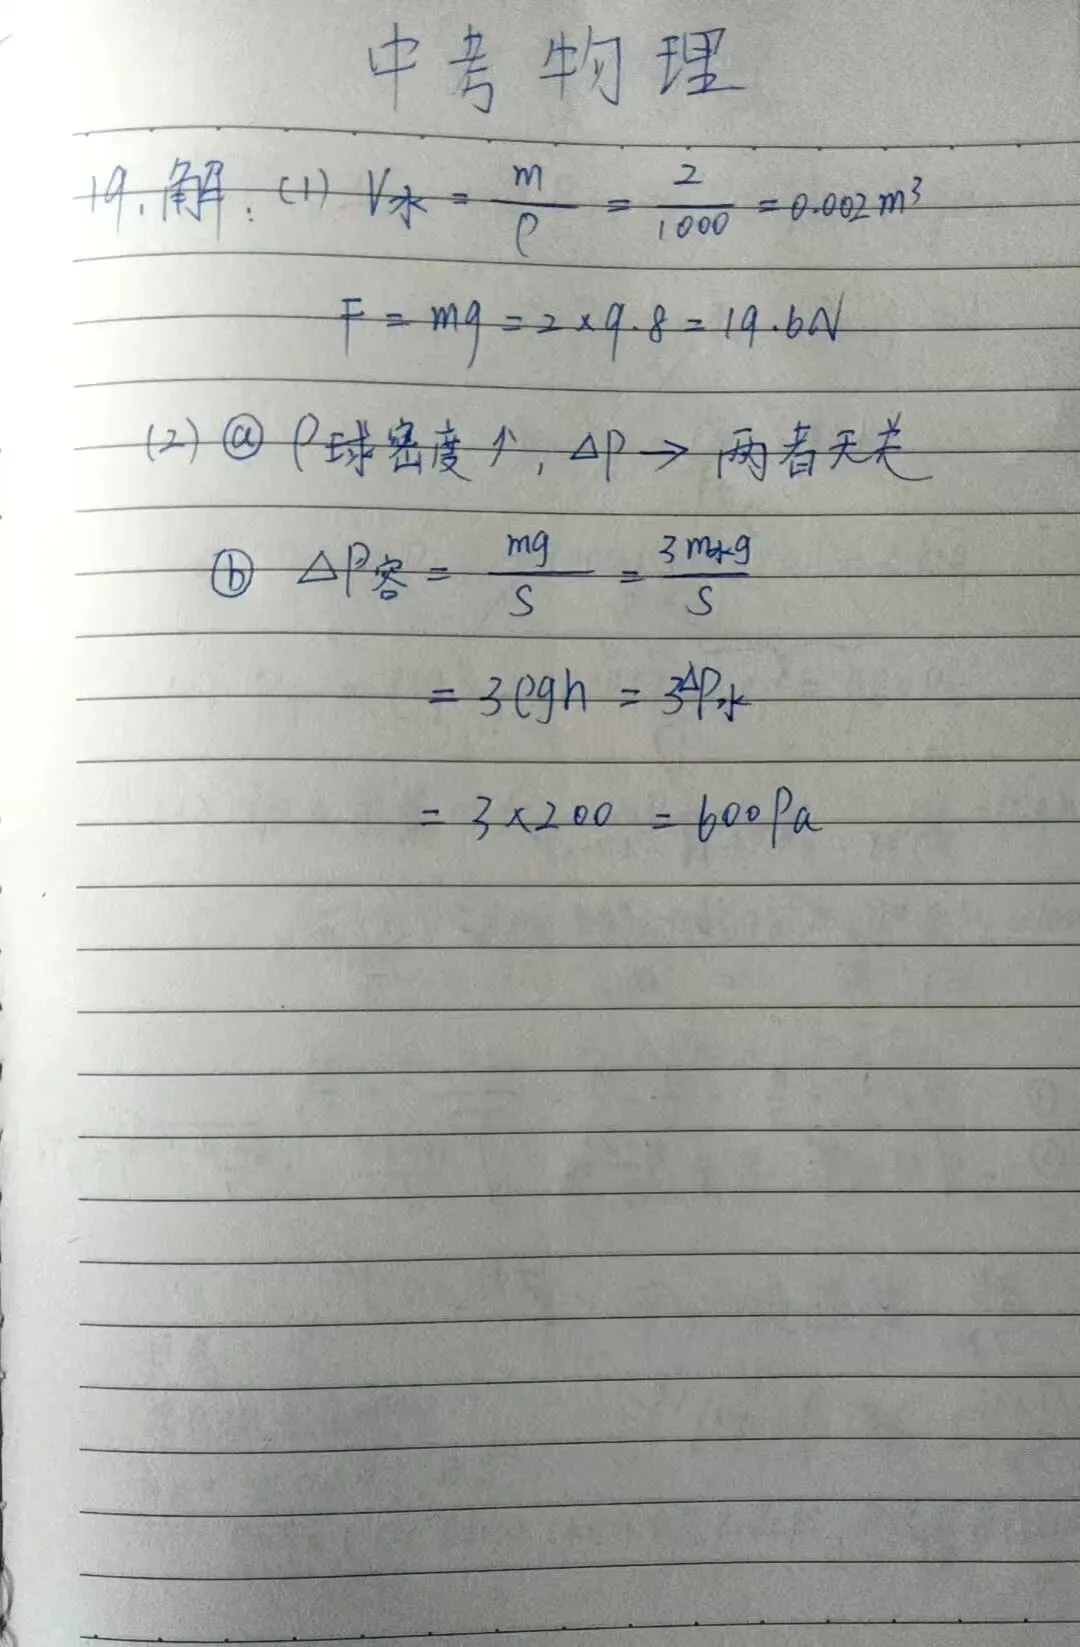 中考物理
19.解:(1) V水 = m/ρ = 2/1000 = 0.002m³
F = mg = 2×9.8 = 19.6N
(2) ⓐ ρ球密度↑, ΔP → 两者无关
ⓑ ΔP容 = mg/S = 3m水g/S
= 3ρgh = 3ΔP水
= 3×200 = 600Pa